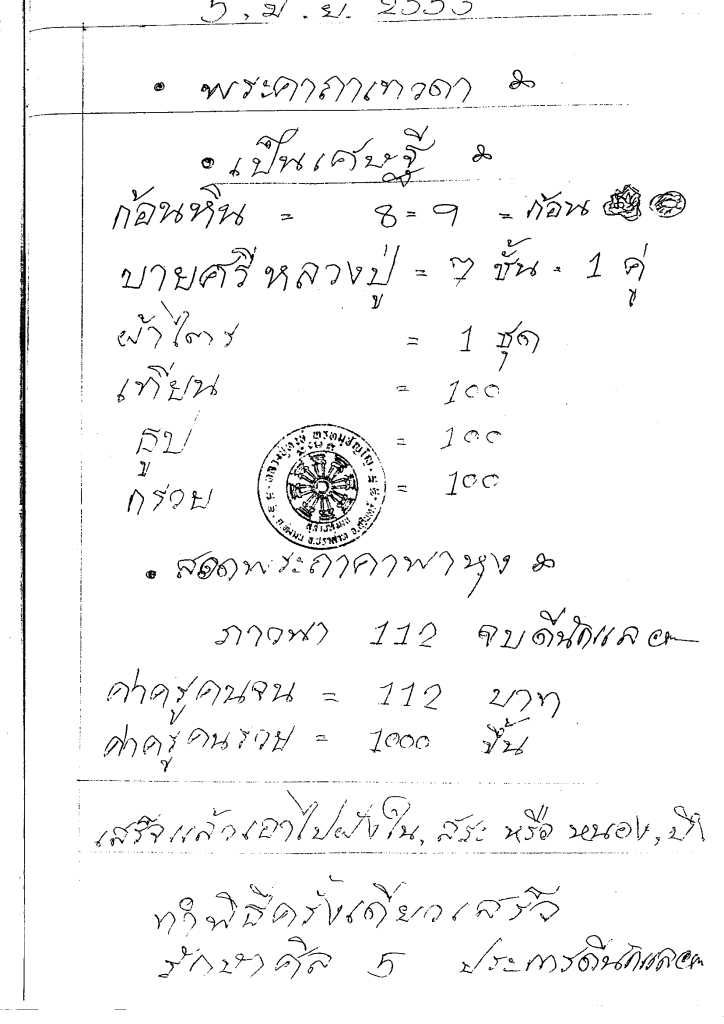 5, ม.ย. 2553
• พระคาถาเทวดา
• เป็นเศษฐี
ก้อนหิน = 8 = 9 = ก้อน
บายศรี หลวงปู่ = 7 ชั้น = 1 คู่
ผ้าไตร = 1 ชุด
เทียน = 100
ธูป = 100
กรวย = 100
• สวดพระถาคาพาหุง
ภาวนา 112 จบดีนักแล
ค่าครูคนจน = 112 บาท
ค่าครูคนรวย = 1000 ขึ้น
เสร็จแล้วเอาไปฝังใน, สระ หรือ หนอง,
ทำพิธีครั้งเดียวเสร็จ
รักษาศีล 5 ประการดีนักแล